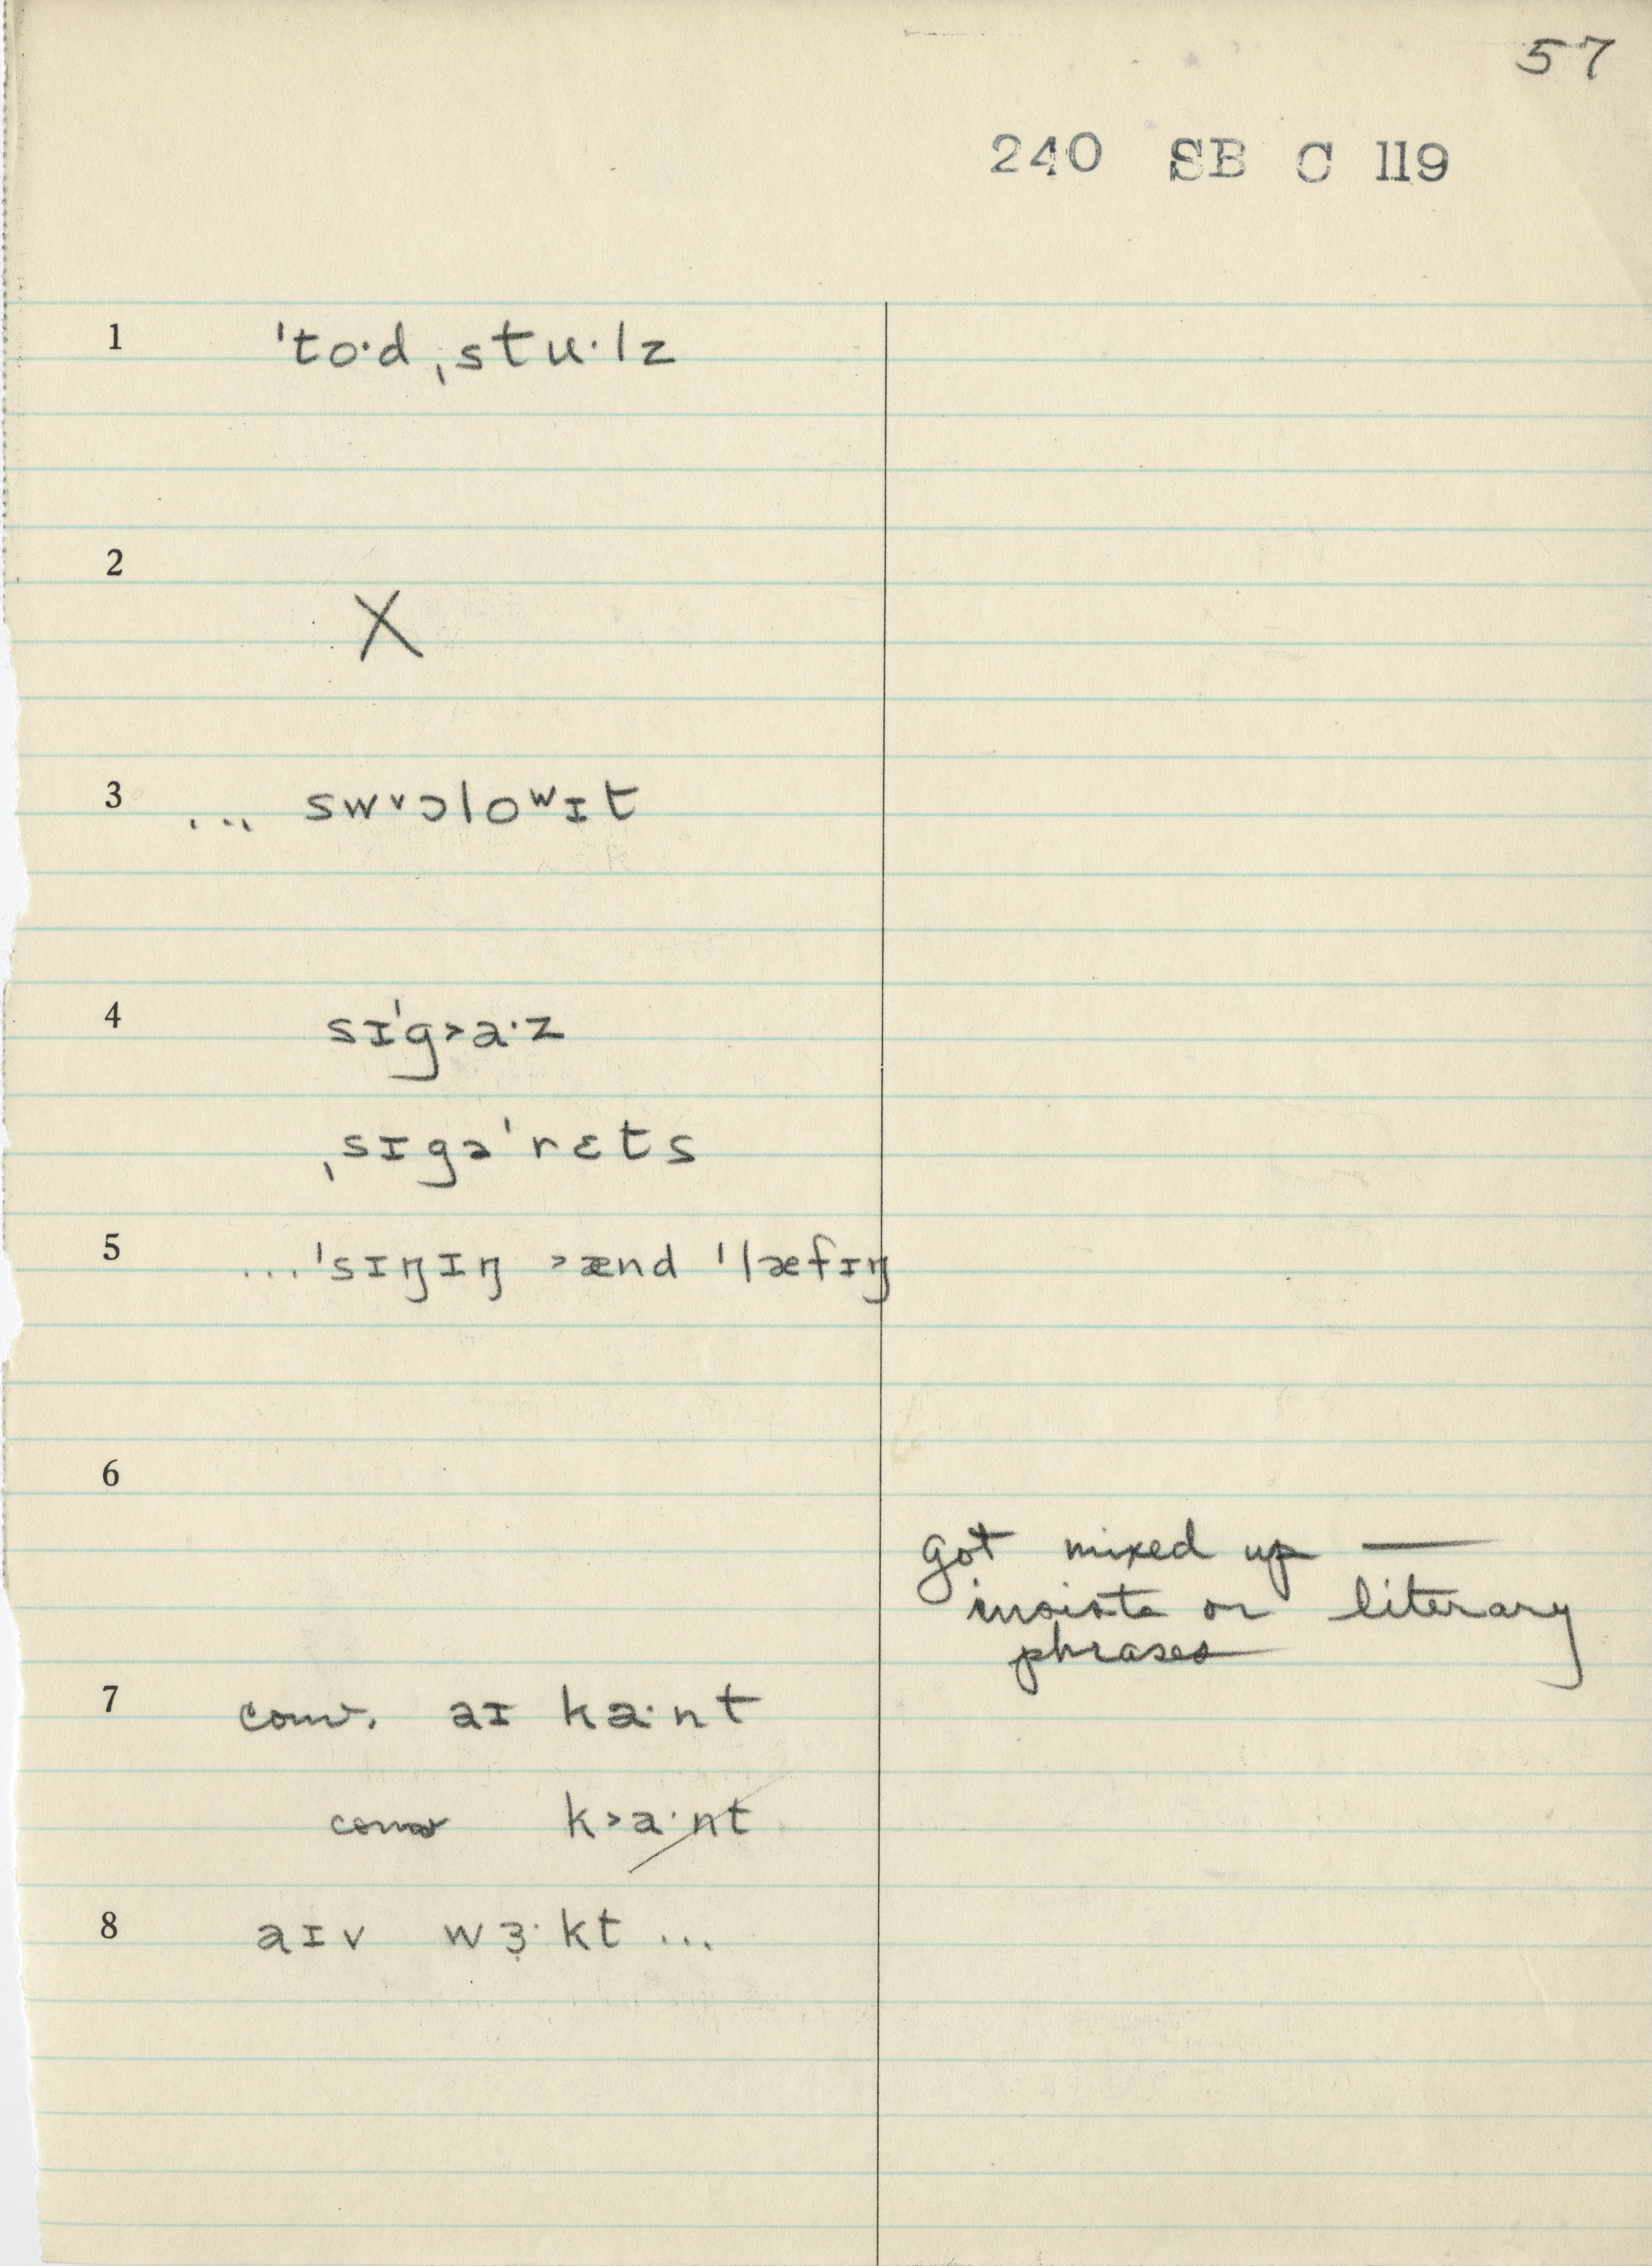 57
240 SB C 119
1 ˈto·d ˌstu·lz
2
X
3 ... sw˅ɔloʷɪt
4 sɪˈg˃a·z
ˌsɪgəˈrɛts
5 ...ˈsɪŋɪŋ ˃ænd ˈlæfɪŋ
6
got mixed up —
insists on literary
phrases
7 conv. aɪ ka·nt
conv k˃a·nt
8 aɪv wɜ̣·kt ...